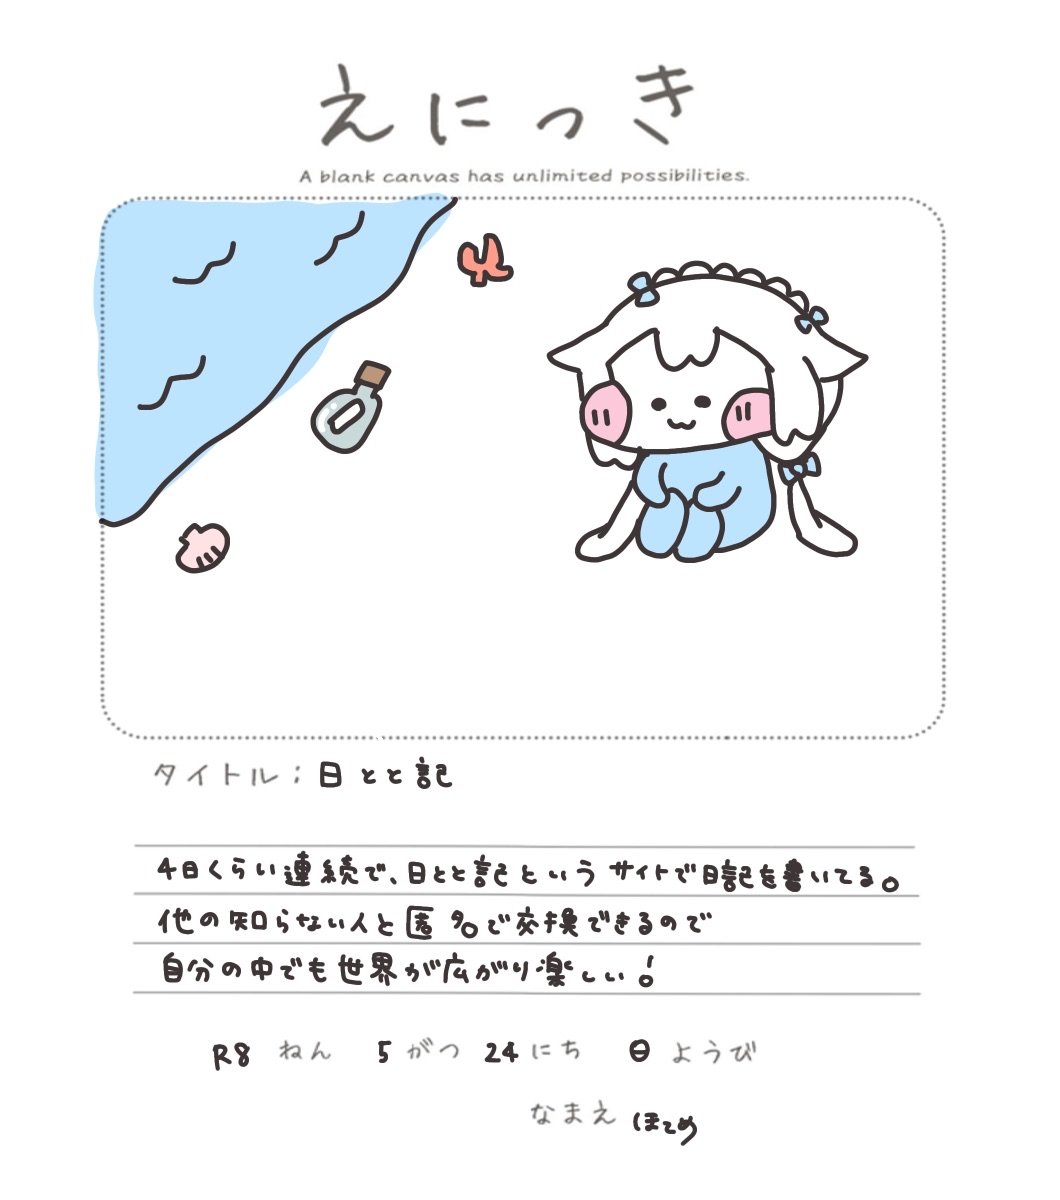 えにっき
A blank canvas has unlimited possibilities.
タイトル：日とと記
4日くらい連続で、日とと記というサイトで日記を書いてる。
他の知らない人と匿名で交換できるので
自分の中でも世界が広がり楽しい！
R8 ねん 5 がつ 24 にち 日 ようび
なまえ ほとめ